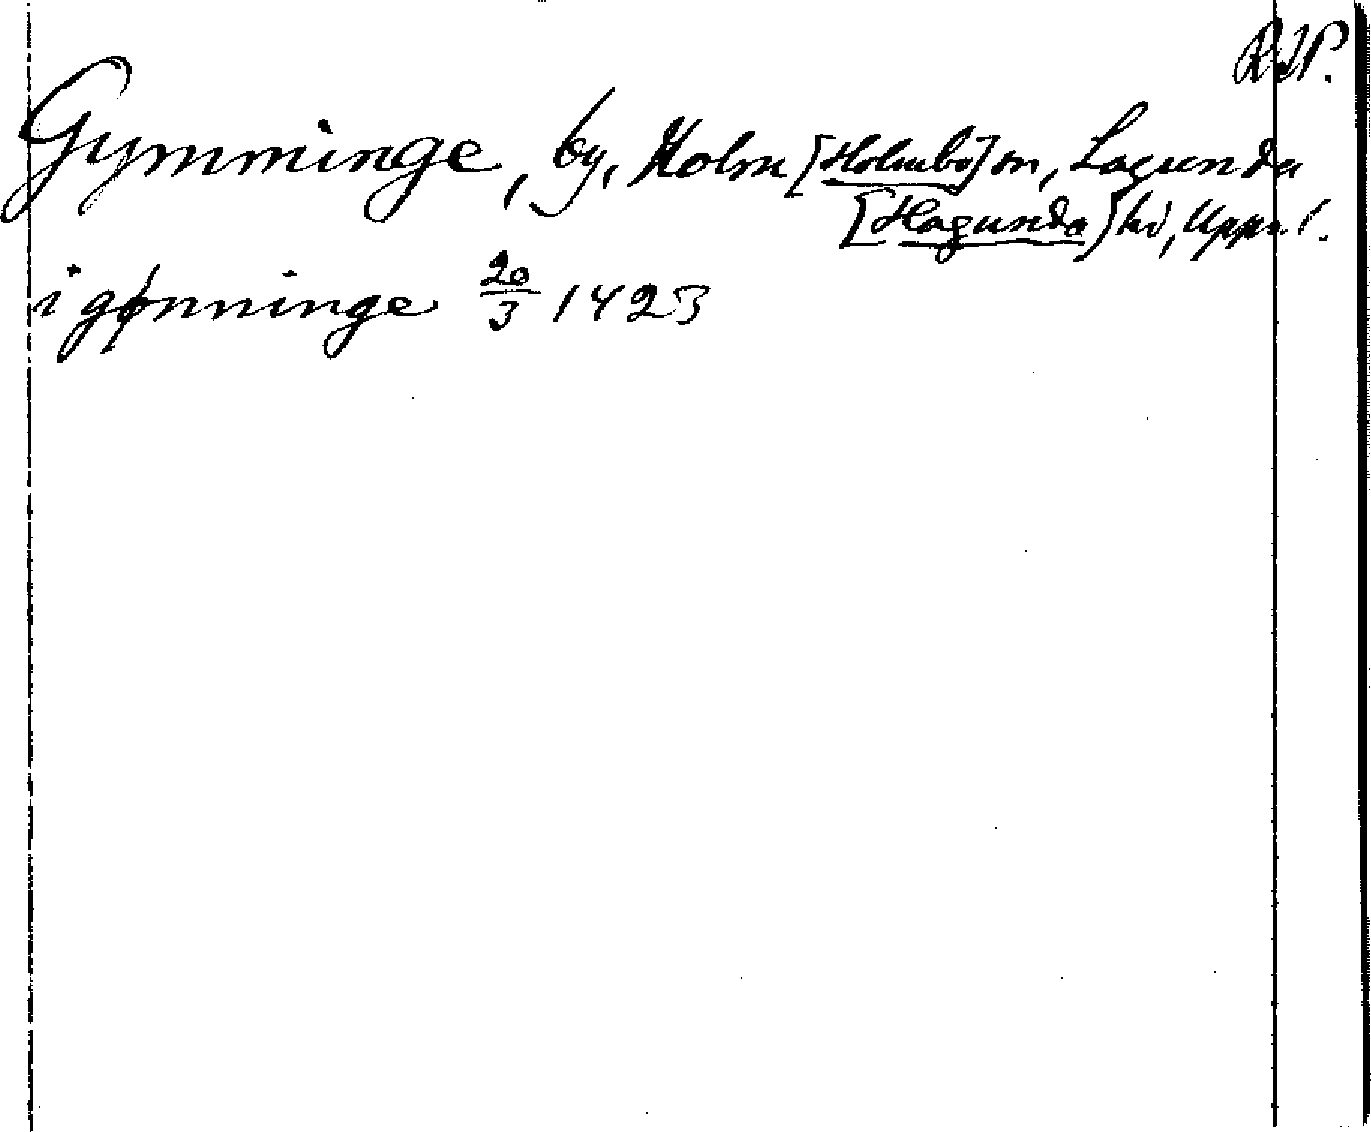 RAP.
Gymminge, by, Holm [Holmbo] sn, Lagunda
[Hagunda] hd, Uppl.
i gønninge 20/3 1423